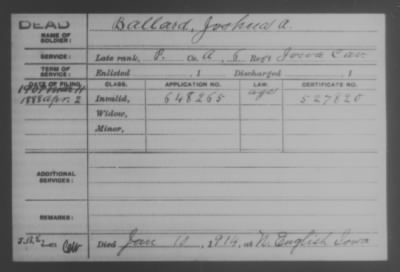 DEAD
NAME OF SOLDIER: Ballard, Joshua A.
SERVICE: Late rank, P. Co. A, 6 Reg't Iowa Cav
TERM OF SERVICE: Enlisted , 1 Discharged , 1
DATE OF FILING. CLASS. APPLICATION NO. LAW. CERTIFICATE NO.
1888 Apr. 2 Invalid, 648265 age 527820
Widow,
Minor,
ADDITIONAL SERVICES:
REMARKS:
Died Jan 10, 1914, at N. English Iowa